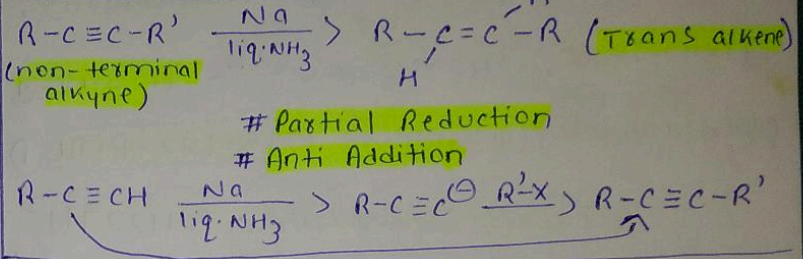 R-C≡C-R' Na/liq.NH₃ > R-C=C-R (Trans alkene)
(non-terminal
alkyne)
H
# Partial Reduction
# Anti Addition
R-C≡CH Na/liq.NH₃ > R-C≡C⊖ R'-X > R-C≡C-R'